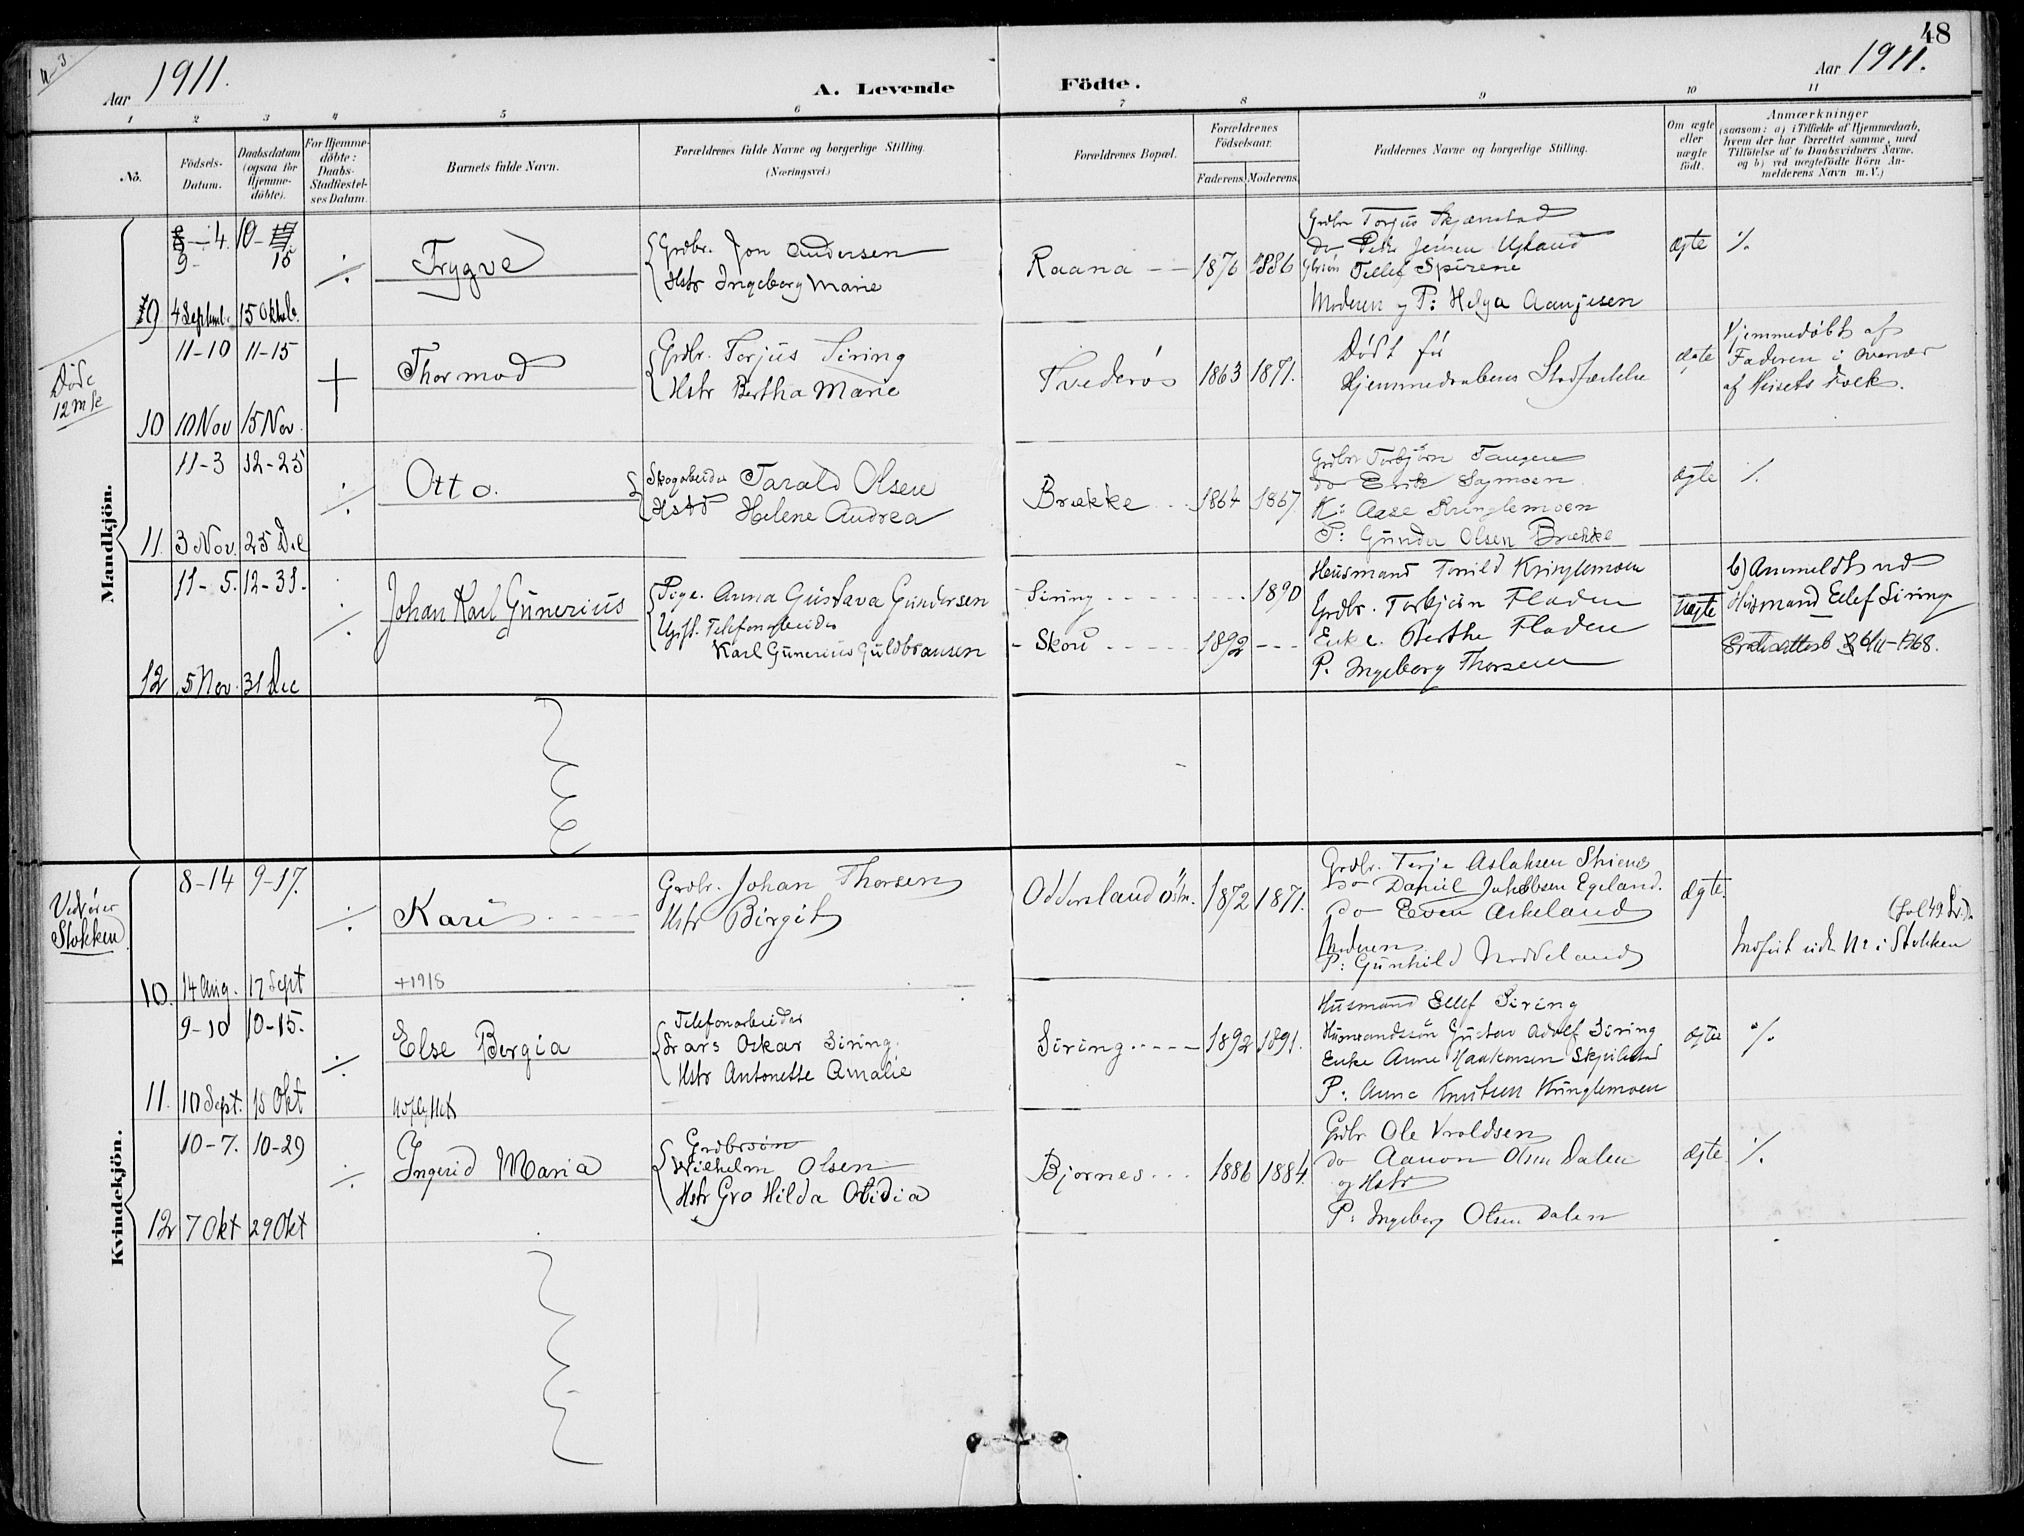 48
Aar 1911.
A. Levende Födte.
Aar 1911.
1 2 3 4 5 6 7 8 9 10 11
No.
Födsels-Datum.
Daabsdatum (ogsaa for Hjemme-döbte).
For Hjemme-döbte: Daabs-Stadfæstel-ses Datum.
Barnets fulde Navn.
Forældrenes fulde Navne og borgerlige Stilling. (Næringsvei.)
Forældrenes Bopæl.
Forældrenes Födselsaar.
Faderens. Moderens.
Faddernes Navne og borgerlige Stilling.
Om ægte eller uægte födt.
Anmærkninger
(saasom: a) i Tilfælde af Hjemmedaab, hvem der har forrettet samme, med Tilföielse af to Daabsvidners Navne, og b) ved uægtefödte Börn An-melderens Navn m. V.)
Mandkjön.
9 - 4. 10 - 15
Trygve
Grdbr. Jon Andersen
Hstr Ingeborg Marie
Raana 1876 1886
Grdbr Torjus Skjænstad
do Peder Jensen Ugland
Tellef Spirene
Moderen og P: Helga Aanjesen
ægte %
9 4 Septemb. 15 Oktob.
Døde
11-10 11-15
+
Thormod
Grdbr. Terjus Siring
Hstr Bertha Marie
Tvederøs 1863 1871.
Dødt før
Hjemmedaabens Stadfæstelse
ægte
Hjemmedøbt af
Faderen i Overvær
af Husets Folk.
10 10 Nov 15 Nov.
11-3 12-25
Otto.
Skogarbeider Tarald Olsen
Hstr Helene Andrea
Brække 1864 1867
Grdbr Torbjørn Tangen
do Erik Sagmoen
K: Aase Kringlemoen
P: Gunda Olsen Brække
ægte %
11 3 Nov. 25 Dec
11-5. 12-31.
Johan Karl Gunerius
Pige. Anna Gustava Gundersen
Ugift. Telefonarbeider
Karl Gunerius Guldbransen
Siring 1890
Skou 1892
Husmand Torild Kringlemoen
Grdbr. Torbjørn Fladen
Enke. Berthe Fladen
P. Ingeborg Thorsen
uægte
b) Anmeldt ved
Husmand Ellef Siring
12 5 Nov. 31 Dec
Kvindekjön.
Vedrører
Stokken
8-14 9-17.
Kari
Grdbr. Johan Thorsen
Hstr Birgit
Oddersland østr. 1872 1871.
Grdbr. Terje Aslaksen Skienes
do Daniel Jakobsen Egeland.
do Even Askeland
Moderen
P: Gunhild Noddeland
ægte.
Indført und. Nr i Stokken
10. 14 Aug. 17 Sept
+1918
9-10 10-15.
Else Bergia
Telefonarbeider
Lars Oskar Siring.
Hstr Antonette Amalie
Siring 1892 1891.
Husmand Ellef Siring
Husmandssøn Gustav Adolf Siring
Enke Anne Haakonsen
P: Anna Knutsen Kringlemoen
ægte %
11. 10 Sept. 15 Okt
10-7. 10-29
Ingerid Maria
Grdbrsøn
Wilhelm Olsen
Hstr Gro Hilda Otidia
Bjornes 1886 1884.
Grdbr Ole Vroldsen
do Aanon Olsen Dalen
og Hstr
P: Ingeborg Olsen Dalen
ægte %
12 7 Okt 29 Okt